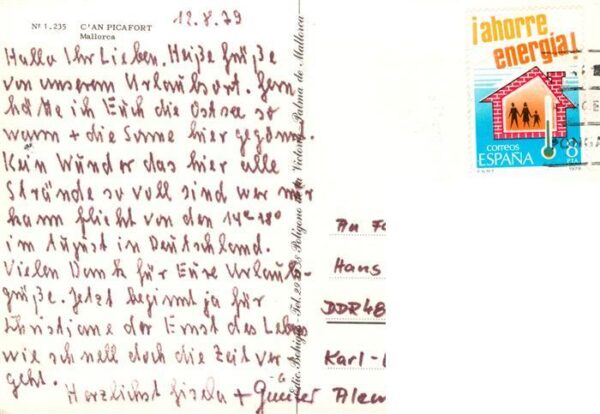 Nº 1.235 C'AN PICAFORT
Mallorca
12.8.79
Hallo Ihr Lieben. Heiße Grüße
von unserem Urlaubsort. Gern
hätte ich Euch die Ostsee so
warm + die Sonne hier gegönnt.
Kein Wunder das hier alle
Strände so voll sind wer nur
kann flieht von den 14°-18°
im August in Deutschland.
Vielen Dank für Eure Urlaub-
grüße. Jetzt beginnt ja für
Christiane der Ernst des Lebens
wie schnell doch die Zeit ver
geht.
Herzlichst Gisela + Gunter
Polígono de la Victoria - Palma de Mallorca
¡ahorre
energía!
correos
ESPAÑA
8
PTA
An Fa
Hans
DDR 48
Karl-